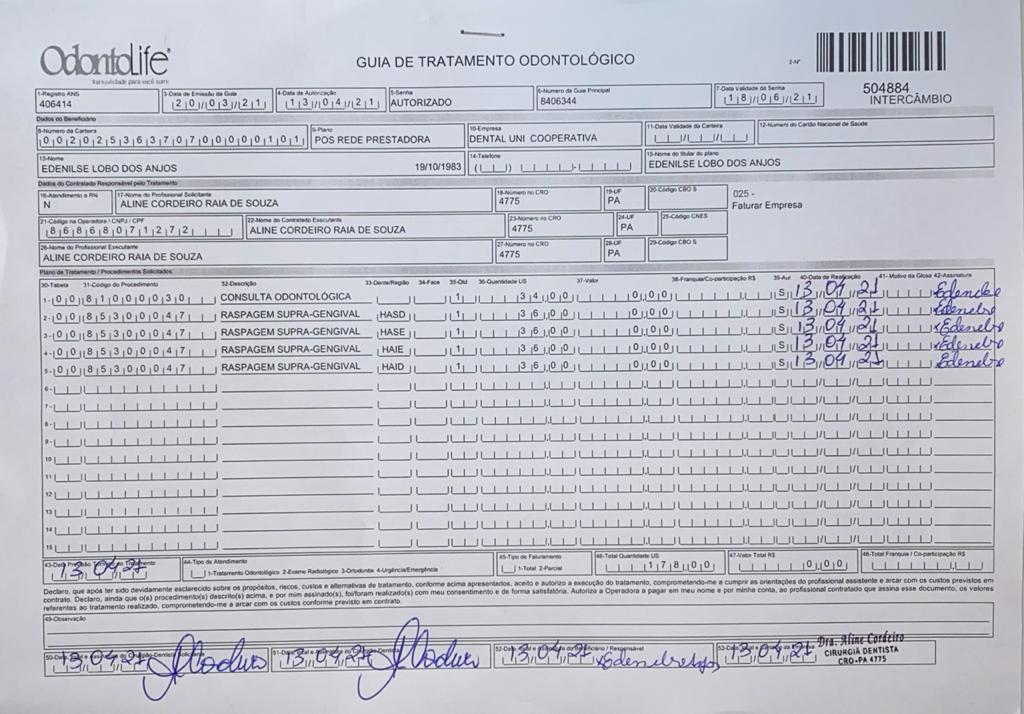 OdontoLife
tranquilidade para você sorrir
GUIA DE TRATAMENTO ODONTOLÓGICO
2-Nº
504884
INTERCÂMBIO
1-Registro ANS 3-Data de Emissão da Guia 4-Data de Autorização 5-Senha 6-Número da Guia Principal 7-Data Validade da Senha
406414 20/03/21 13/04/21 AUTORIZADO 8406344 18/06/21
Dados do Beneficiário
8-Número da Carteira 9-Plano 10-Empresa 11-Data Validade da Carteira 12-Número do Cartão Nacional de Saúde
00202536370700000101 POS REDE PRESTADORA DENTAL UNI COOPERATIVA
13-Nome 14-Telefone 15-Nome do titular do plano
EDENILSE LOBO DOS ANJOS 19/10/1983 EDENILSE LOBO DOS ANJOS
Dados do Contratado Responsável pelo Tratamento
16-Atendimento a RN 17-Nome do Profissional Solicitante 18-Número no CRO 19-UF 20-Código CBO S 025 -
N ALINE CORDEIRO RAIA DE SOUZA 4775 PA Faturar Empresa
21-Código na Operadora / CNPJ / CPF 22-Nome do Contratado Executante 23-Número no CRO 24-UF 25-Código CNES
86868071272 ALINE CORDEIRO RAIA DE SOUZA 4775 PA
26-Nome do Profissional Executante 27-Número no CRO 28-UF 29-Código CBO S
ALINE CORDEIRO RAIA DE SOUZA 4775 PA
Plano de Tratamento / Procedimentos Solicitados
30-Tabela 31-Código do Procedimento 32-Descrição 33-Dente/Região 34-Face 35-Qtd 36-Quantidade US 37-Valor 38-Franquia/Co-participação R$ 39-Aut 40-Data de Realização 41- Motivo da Glosa 42-Assinatura
1- 00 81000030 CONSULTA ODONTOLÓGICA 1 34,00 0,00 S 13 04 21
2- 00 85300047 RASPAGEM SUPRA-GENGIVAL HASD 1 36,00 0,00 S 13 04 21
3- 00 85300047 RASPAGEM SUPRA-GENGIVAL HASE 1 36,00 0,00 S 13 04 21
4- 00 85300047 RASPAGEM SUPRA-GENGIVAL HAIE 1 36,00 0,00 S 13 04 21
5- 00 85300047 RASPAGEM SUPRA-GENGIVAL HAID 1 36,00 0,00 S 13 04 21
6-
7-
8-
9-
10
11
12
13
14
15
43-Data Previsão Término do Tratamento 44-Tipo de Atendimento 45-Tipo de Faturamento 46-Total Quantidade US 47-Valor Total R$ 48-Total Franquia / Co-participação R$
13 04 21 1-Tratamento Odontológico 2-Exame Radiológico 3-Ortodontia 4-Urgência/Emergência 1-Total 2-Parcial 178,00 0,00
Declaro, que após ter sido devidamente esclarecido sobre os propósitos, riscos, custos e alternativas de tratamento, conforme acima apresentados, aceito e autorizo a execução do tratamento, comprometendo-me a cumprir as orientações do profissional assistente e arcar com os custos previstos em
contrato. Declaro, ainda que o(s) procedimento(s) descrito(s) acima, e por mim assinado(s), foi/foram realizado(s) com meu consentimento e de forma satisfatória. Autorizo a Operadora a pagar em meu nome e por minha conta, ao profissional contratado que assina esse documento, os valores
referentes ao tratamento realizado, comprometendo-me a arcar com os custos conforme previsto em contrato.
49-Observação
13 04 21 13 04 21 13 04 21 13 04 21
Dra. Aline Cordeiro
CIRURGIÃ DENTISTA
CRO-PA 4775